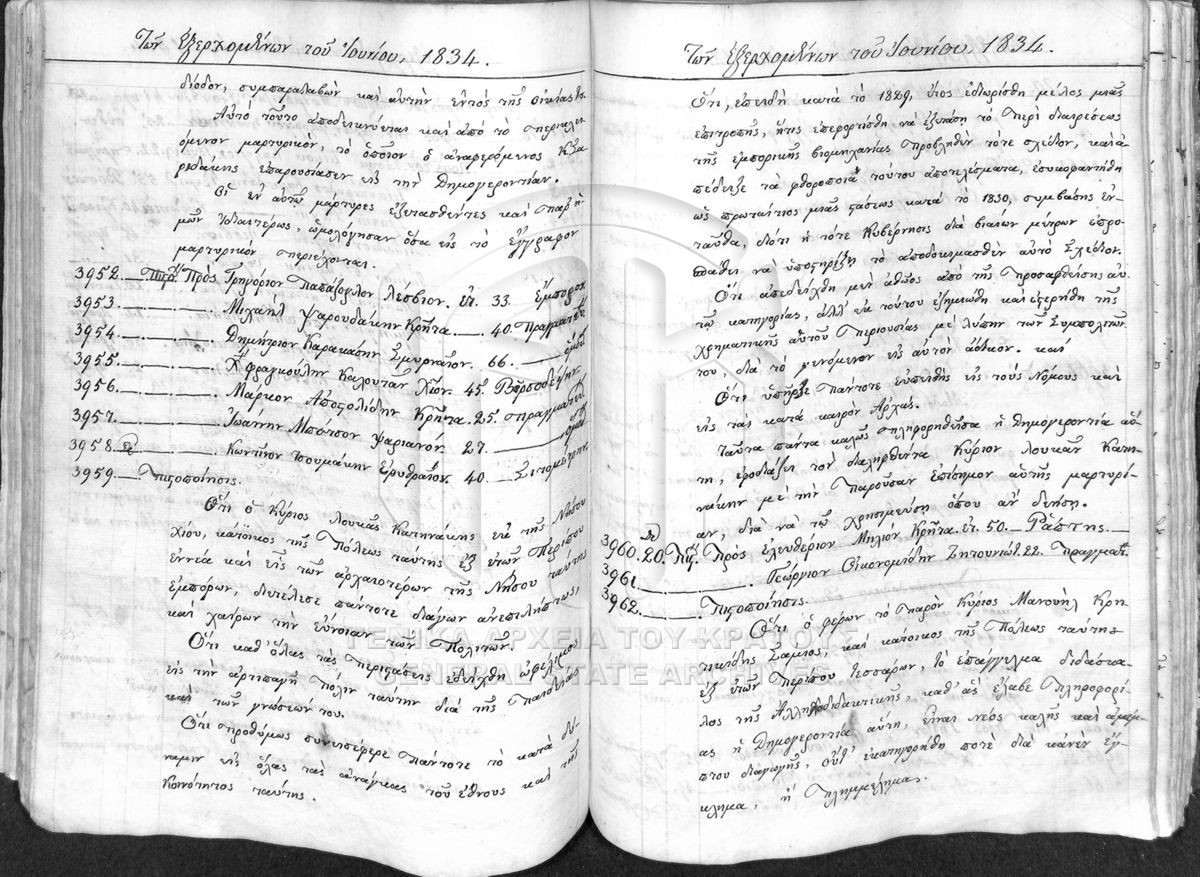 Τῶν ἐξερχομένων τοῦ Ἰουνίου, 1834.
δίοδον, συμπαραλαβὼν καὶ αὐτὴν ἐντὸς τῆς οἰκίας του
Αὐτὸ τοῦτο ἀποδεικνύεται καὶ ἀπὸ τὸ περικλει
όμενον μαρτυρικόν, τὸ ὁποῖον ὁ ἀναφερόμενος
ἐπαρουσίασεν εἰς τὴν Δημογεροντίαν.
Οἱ ἐν αὐτῷ μάρτυρες ἐξετασθέντες καὶ παρ' ἡ
μῶν ἰδιαιτέρως, ὡμολόγησαν ὅσα εἰς τὸ ἔγγραφον
μαρτυρικὸν περιέχονται.
3952. Πρὸς Γρηγόριον Παπάζογλον Λέσβιον. ἐτ. 33. Ἔμπορον
3953 Μιχαὴλ Ψαρουδάκην Κρῆτα 40. Πραγματ
3954 Δημήτριον Καρακάσην Σμυρναῖον. 66. ὁμοῦ
3955 Χ Φραγκούλην Καλουτᾶν Χῖον. 45. Βυρσοδέψην
3956 Μάρκον Ἀποστολίδην Κρῆτα. 25. πραγματ
3957 Ἰωάννην Μπότσον Ψαριανόν. 27.
3958 Κωνστῖνον Τσουμάκην Ἐρυθραῖον. 40. Σιτομέτρην
3959 Πιστοποίησις.
Ὅτι ὁ Κύριος Λουκᾶς Κατηνάκης ἐκ τῆς Νήσου
Χίου, κάτοικος τῆς Πόλεως ταύτης ἐξ ἐτῶν Περίπου
ἐννέα καὶ εἷς τῶν ἀρχαιοτέρων τῆς Νήσου ταύτης
ἐμπόρων, διετέλεσε πάντοτε διάγων ἀνεπιλήπτως,
καὶ χαίρων τὴν εὔνοιαν τῶν Πολιτῶν.
Ὅτι καθ' ὅλας τὰς περιστάσεις ἐδείχθη ὠφέλιμος
εἰς τὴν ἀρτιπαγῆ πόλιν ταύτην διὰ τῆς Παιδείας
καὶ τῶν γνώσεών του.
Ὅτι προθύμως συνεισέφερε πάντοτε τὸ κατὰ δύ-
ναμιν εἰς ὅλας τὰς ἀνάγκας τοῦ ἔθνους καὶ τῆς
Κοινότητος ταύτης.
Τῶν ἐξερχομένων τοῦ Ἰουνίου, 1834.
Ὅτι, ἐπειδὴ κατὰ τὸ 1829, ἔτος ἐδιωρίσθη μέλος μιᾶς
ἐπιτροπῆς, ἥτις ἐπεφορτίσθη νὰ ἐξετάσῃ τὸ Περὶ διαιρέσεως
τῆς ἐμπορικῆς βιομηχανίας προβληθὲν τότε σχέδιον, καὶ ἀ
πέδειξε τὰ φθοροποιὰ τούτου ἀποτελέσματα, ἐσυκοφαντήθη
ὡς πρωταίτιος μιᾶς στάσεως κατὰ τὸ 1830, συμβάσης ἐν-
ταῦθα, διότι ἡ τότε Κυβέρνησις διὰ βιαίων μέτρων ἐπρο-
σπάθει νὰ ὑποστηρίξῃ τὸ ἀποδοκιμασθὲν αὐτὸ Σχέδιον.
Ὅτι ἀπεδείχθη μὲν ἀθῶος ἀπὸ τῆς Προσαφθείσης αὐ
τῷ κατηγορίας, ἀλλ' ἐκ τούτου ἐζημιώθη καὶ ἐξερήθη τῆς
χρηματικῆς αὐτοῦ περιουσίας μὲ λύπην τῶν Συμπολιτῶν
του, διὰ τὸ γενόμενον εἰς αὐτὸν ἄδικον. καὶ
Ὅτι ὑπῆρξε πάντοτε εὐπειθὴς εἰς τοὺς Νόμους καὶ
εἰς τὰς κατὰ καιρὸν Ἀρχάς.
Ταῦτα πάντα καλῶς πληροφορηθεῖσα ἡ Δημογεροντία αὕ
τη, ἐφοδιάζει τὸν διαληφθέντα Κύριον Λουκᾶν Κατη-
νάκην μὲ τὴν Παροῦσαν ἐπίσημον αὐτῆς μαρτυρί-
αν, διὰ νὰ τῷ χρησιμεύσῃ ὅπου ἂν δεήσῃ.
3960. 20. Πιστ. Πρὸς Ἐλευθέριον Μηλιὸν Κρῆτα. ἐτ. 50. Ῥάπτης.
3961 Γεώργιον Οἰκονομίδην Ζητουνιώτ. 22. Πραγματ.
3962. Πιστοποίησις.
Ὅτι ὁ φέρων τὸ παρὸν Κύριος Μανουὴλ Κρη-
τικίδης Σάμιος, καὶ κάτοικος τῆς Πόλεως ταύτης
ἐξ ἐτῶν Περίπου τεσσάρων, τὸ ἐπάγγελμα διδάσκα-
λος τῆς Ἀλληλοδιδακτικῆς, καθ' ἃς ἔλαβε πληροφορί-
ας ἡ Δημογεροντία αὕτη, εἶναι νέος καλῆς καὶ ἀμέμ-
πτου διαγωγῆς, οὐδ' ἐκατηγορήθη ποτὲ διὰ κανὲν ἔγ-
κλημα, ἢ πλημμέλημα.
ΓΕΝΙΚΑ ΑΡΧΕΙΑ ΤΟΥ ΚΡΑΤΟΥΣ
GENERAL STATE ARCHIVES